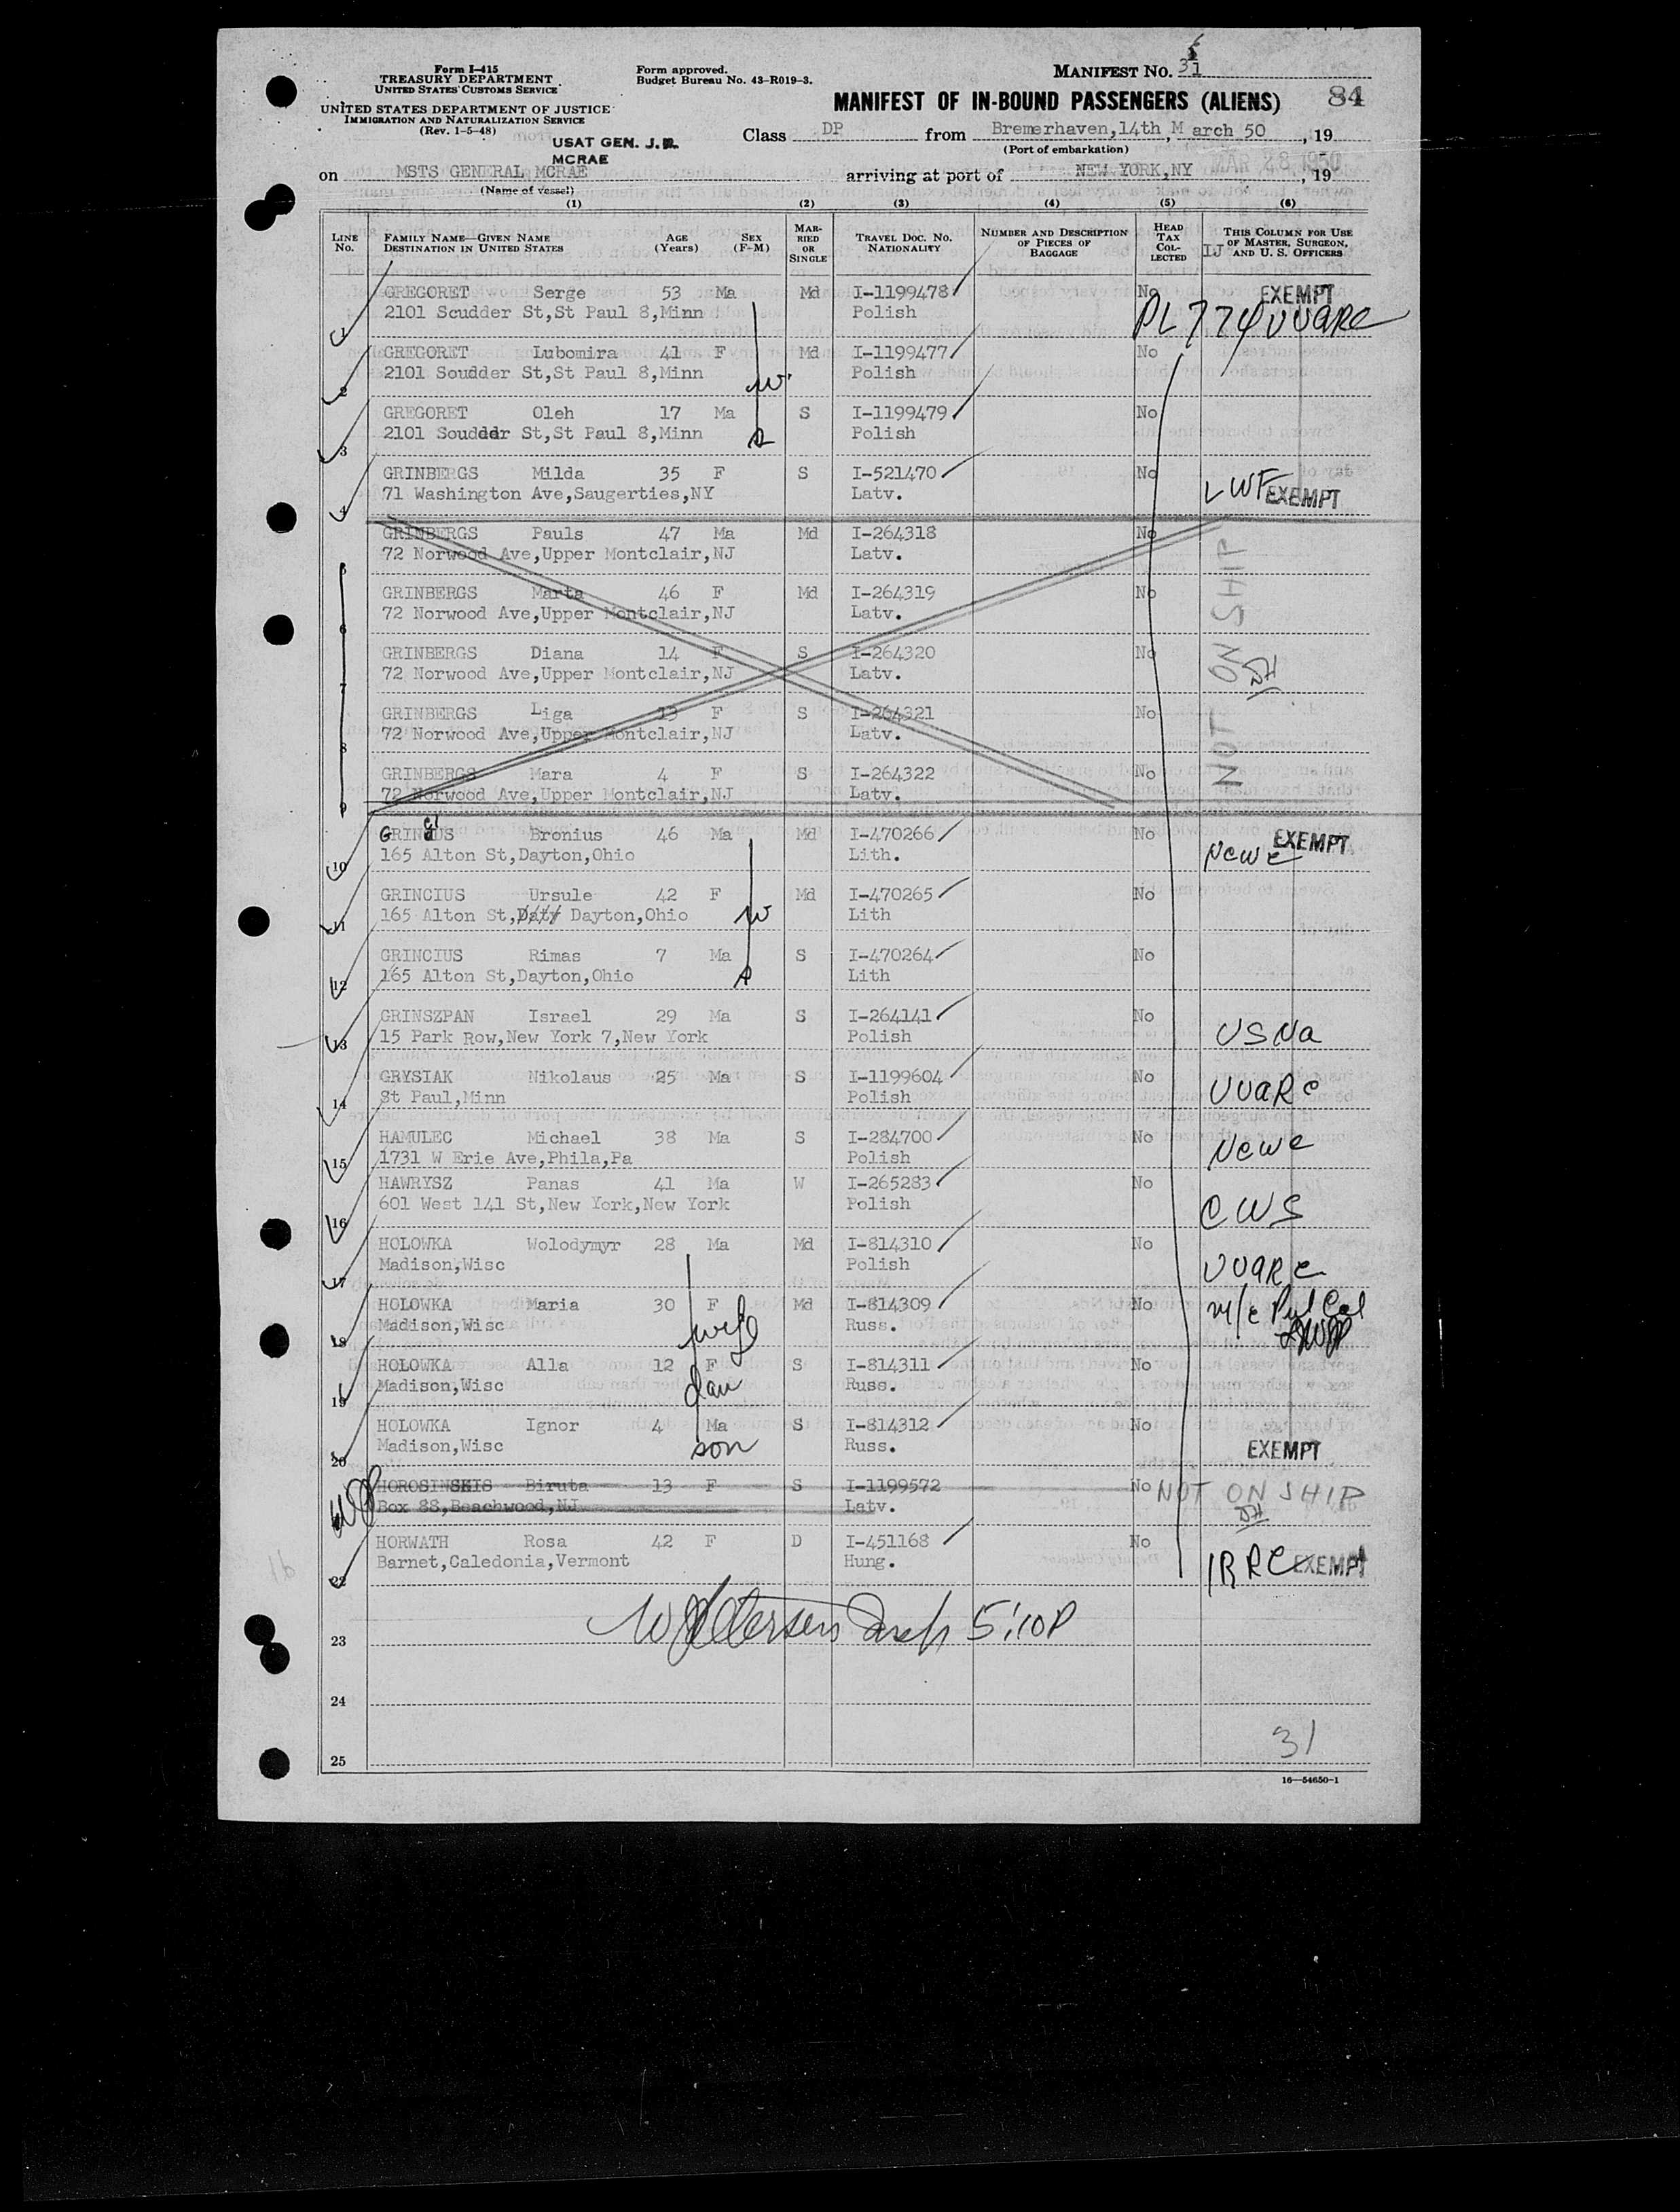 Form I-415
TREASURY DEPARTMENT
UNITED STATES CUSTOMS SERVICE
UNITED STATES DEPARTMENT OF JUSTICE
IMMIGRATION AND NATURALIZATION SERVICE
(Rev. 1-5-48)
Form approved.
Budget Bureau No. 43-R019-3.
MANIFEST NO. 31
MANIFEST OF IN-BOUND PASSENGERS (ALIENS) 84
USAT GEN. J.
MCRAE
Class DP from Bremerhaven,14th,March 50, 19
(Port of embarkation)
MAR 28 1950
on MSTS GENERAL MCRAE arriving at port of NEW YORK,NY, 19
(Name of vessel)
(1) (2) (3) (4) (5) (6)
LINE NO. FAMILY NAME—GIVEN NAME DESTINATION IN UNITED STATES AGE (Years) SEX (F-M) MARRIED OR SINGLE TRAVEL DOC. NO. NATIONALITY NUMBER AND DESCRIPTION OF PIECES OF BAGGAGE HEAD TAX COLLECTED THIS COLUMN FOR USE OF MASTER, SURGEON, AND U. S. OFFICERS
IJ
GREGORET Serge 53 Ma Md I-1199478 No EXEMPT
1 2101 Scudder St,St Paul 8,Minn Polish PL 774 UUARC
GREGORET Lubomira 41 F Md I-1199477 No
2 2101 Soudder St,St Paul 8,Minn w Polish
GREGORET Oleh 17 Ma S I-1199479 No
3 2101 Souddr St,St Paul 8,Minn s Polish
GRINBERGS Milda 35 F S I-521470 No LWF EXEMPT
4 71 Washington Ave,Saugerties,NY Latv.
GRINBERGS Pauls 47 Ma Md I-264318 No
5 72 Norwood Ave,Upper Montclair,NJ Latv.
GRINBERGS Marta 46 F Md I-264319 No
6 72 Norwood Ave,Upper Montclair,NJ Latv.
GRINBERGS Diana 14 F S I-264320 No NOT ON SHIP
7 72 Norwood Ave,Upper Montclair,NJ Latv.
GRINBERGS Liga 13 F S I-264321 No
8 72 Norwood Ave,Upper Montclair,NJ Latv.
GRINBERGS Mara 4 F S I-264322 No
9 72 Norwood Ave,Upper Montclair,NJ Latv.
GRINCIUS Bronius 46 Ma Md I-470266 No EXEMPT
10 165 Alton St,Dayton,Ohio Lith. NCWC
GRINCIUS Ursule 42 F Md I-470265 No
11 165 Alton St, Dayton,Ohio w Lith
GRINCIUS Rimas 7 Ma S I-470264 No
12 165 Alton St,Dayton,Ohio s Lith
GRINSZPAN Israel 29 Ma S I-264141 No
13 15 Park Row,New York 7,New York Polish USNA
GRYSIAK Nikolaus 25 Ma S I-1199604 No
14 St Paul,Minn Polish UUARC
HAMULEC Michael 38 Ma S I-284700 No
15 1731 W Erie Ave,Phila,Pa Polish NCWC
HAWRYSZ Panas 41 Ma W I-265283 No
16 601 West 141 St,New York,New York Polish CWS
HOLOWKA Wolodymyr 28 Ma Md I-814310 No
17 Madison,Wisc Polish UUARC
HOLOWKA Maria 30 F Md I-814309 No m/c Pul Cal
18 Madison,Wisc wife Russ.
HOLOWKA Alla 12 F S I-814311 No
19 Madison,Wisc dau Russ.
HOLOWKA Ignor 4 Ma S I-814312 No
20 Madison,Wisc son Russ. EXEMPT
HOROSINSKIS Biruta 13 F S I-1199572 No NOT ON SHIP
Box 88,Beachwood,NJ Latv.
HORWATH Rosa 42 F D I-451168 No
22 Barnet,Caledonia,Vermont Hung. IRRC EXEMPT
23 Insp 5:10P
24
25 31
16—54650-1